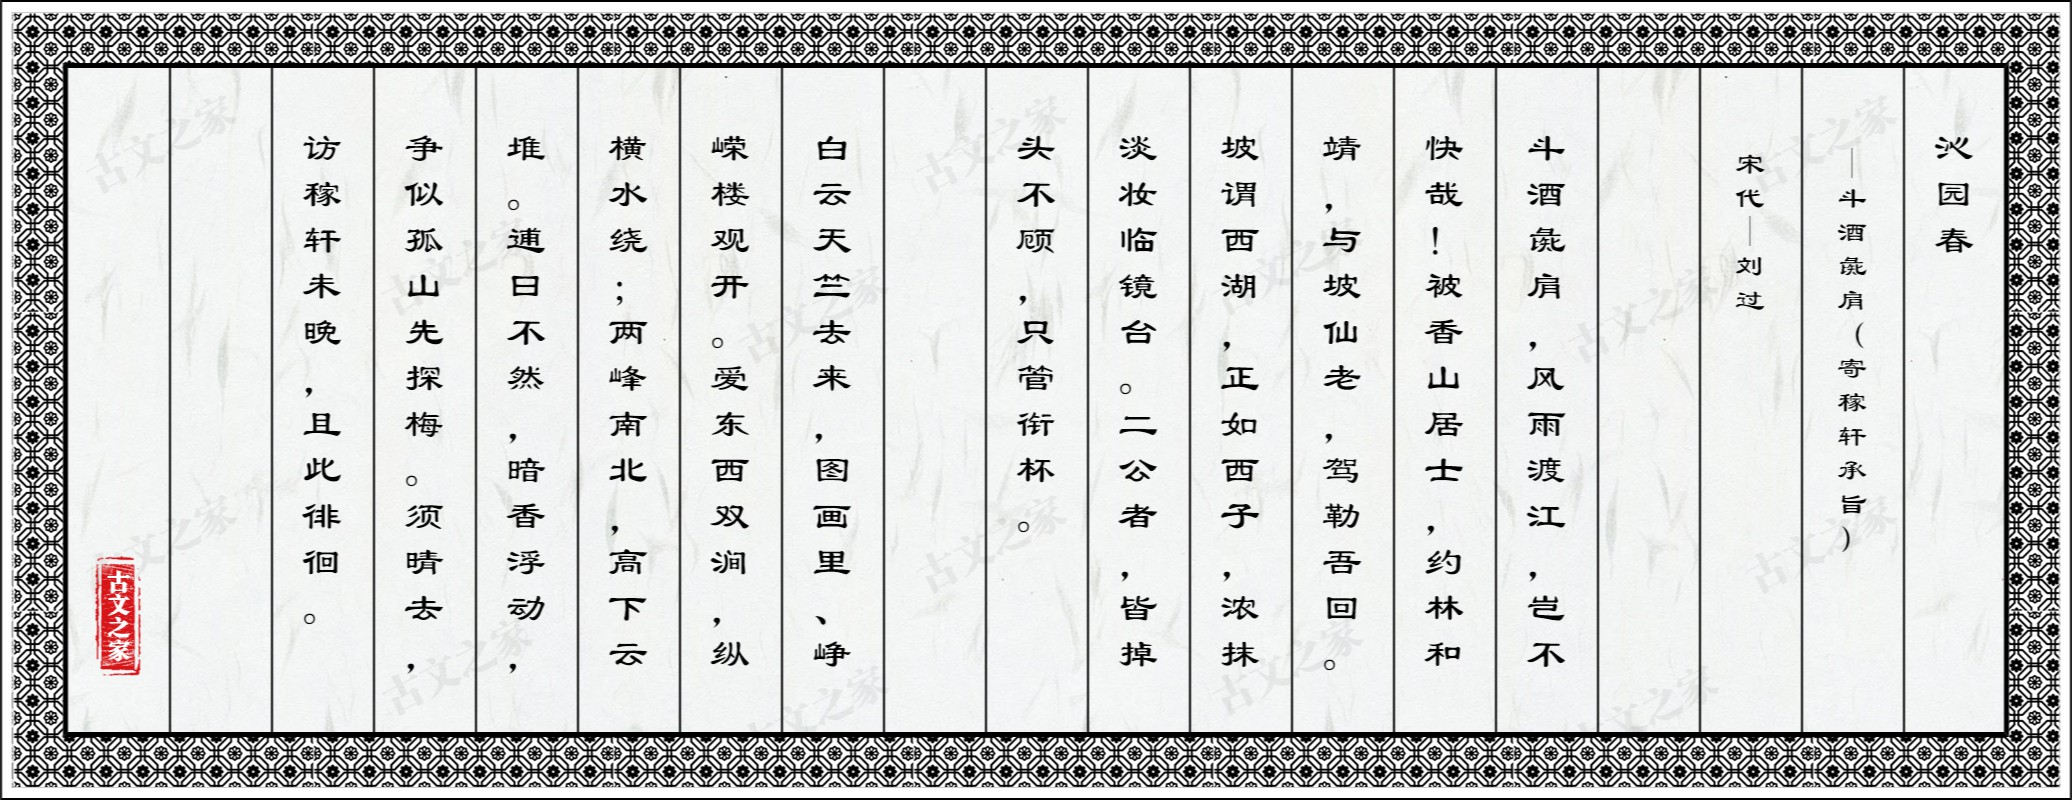 沁园春
——斗酒彘肩(寄稼轩承旨)
宋代——刘过
斗酒彘肩,风雨渡江,岂不
快哉!被香山居士,约林和
靖,与坡仙老,驾勒吾回。
坡谓西湖,正如西子,浓抹
淡妆临镜台。二公者,皆掉
头不顾,只管衔杯。
白云天竺去来,图画里、峥
嵘楼观开。爱东西双涧,纵
横水绕;两峰南北,高下云
堆。逋日不然,暗香浮动,
争似孤山先探梅。须晴去,
访稼轩未晚,且此徘徊。
古文之家